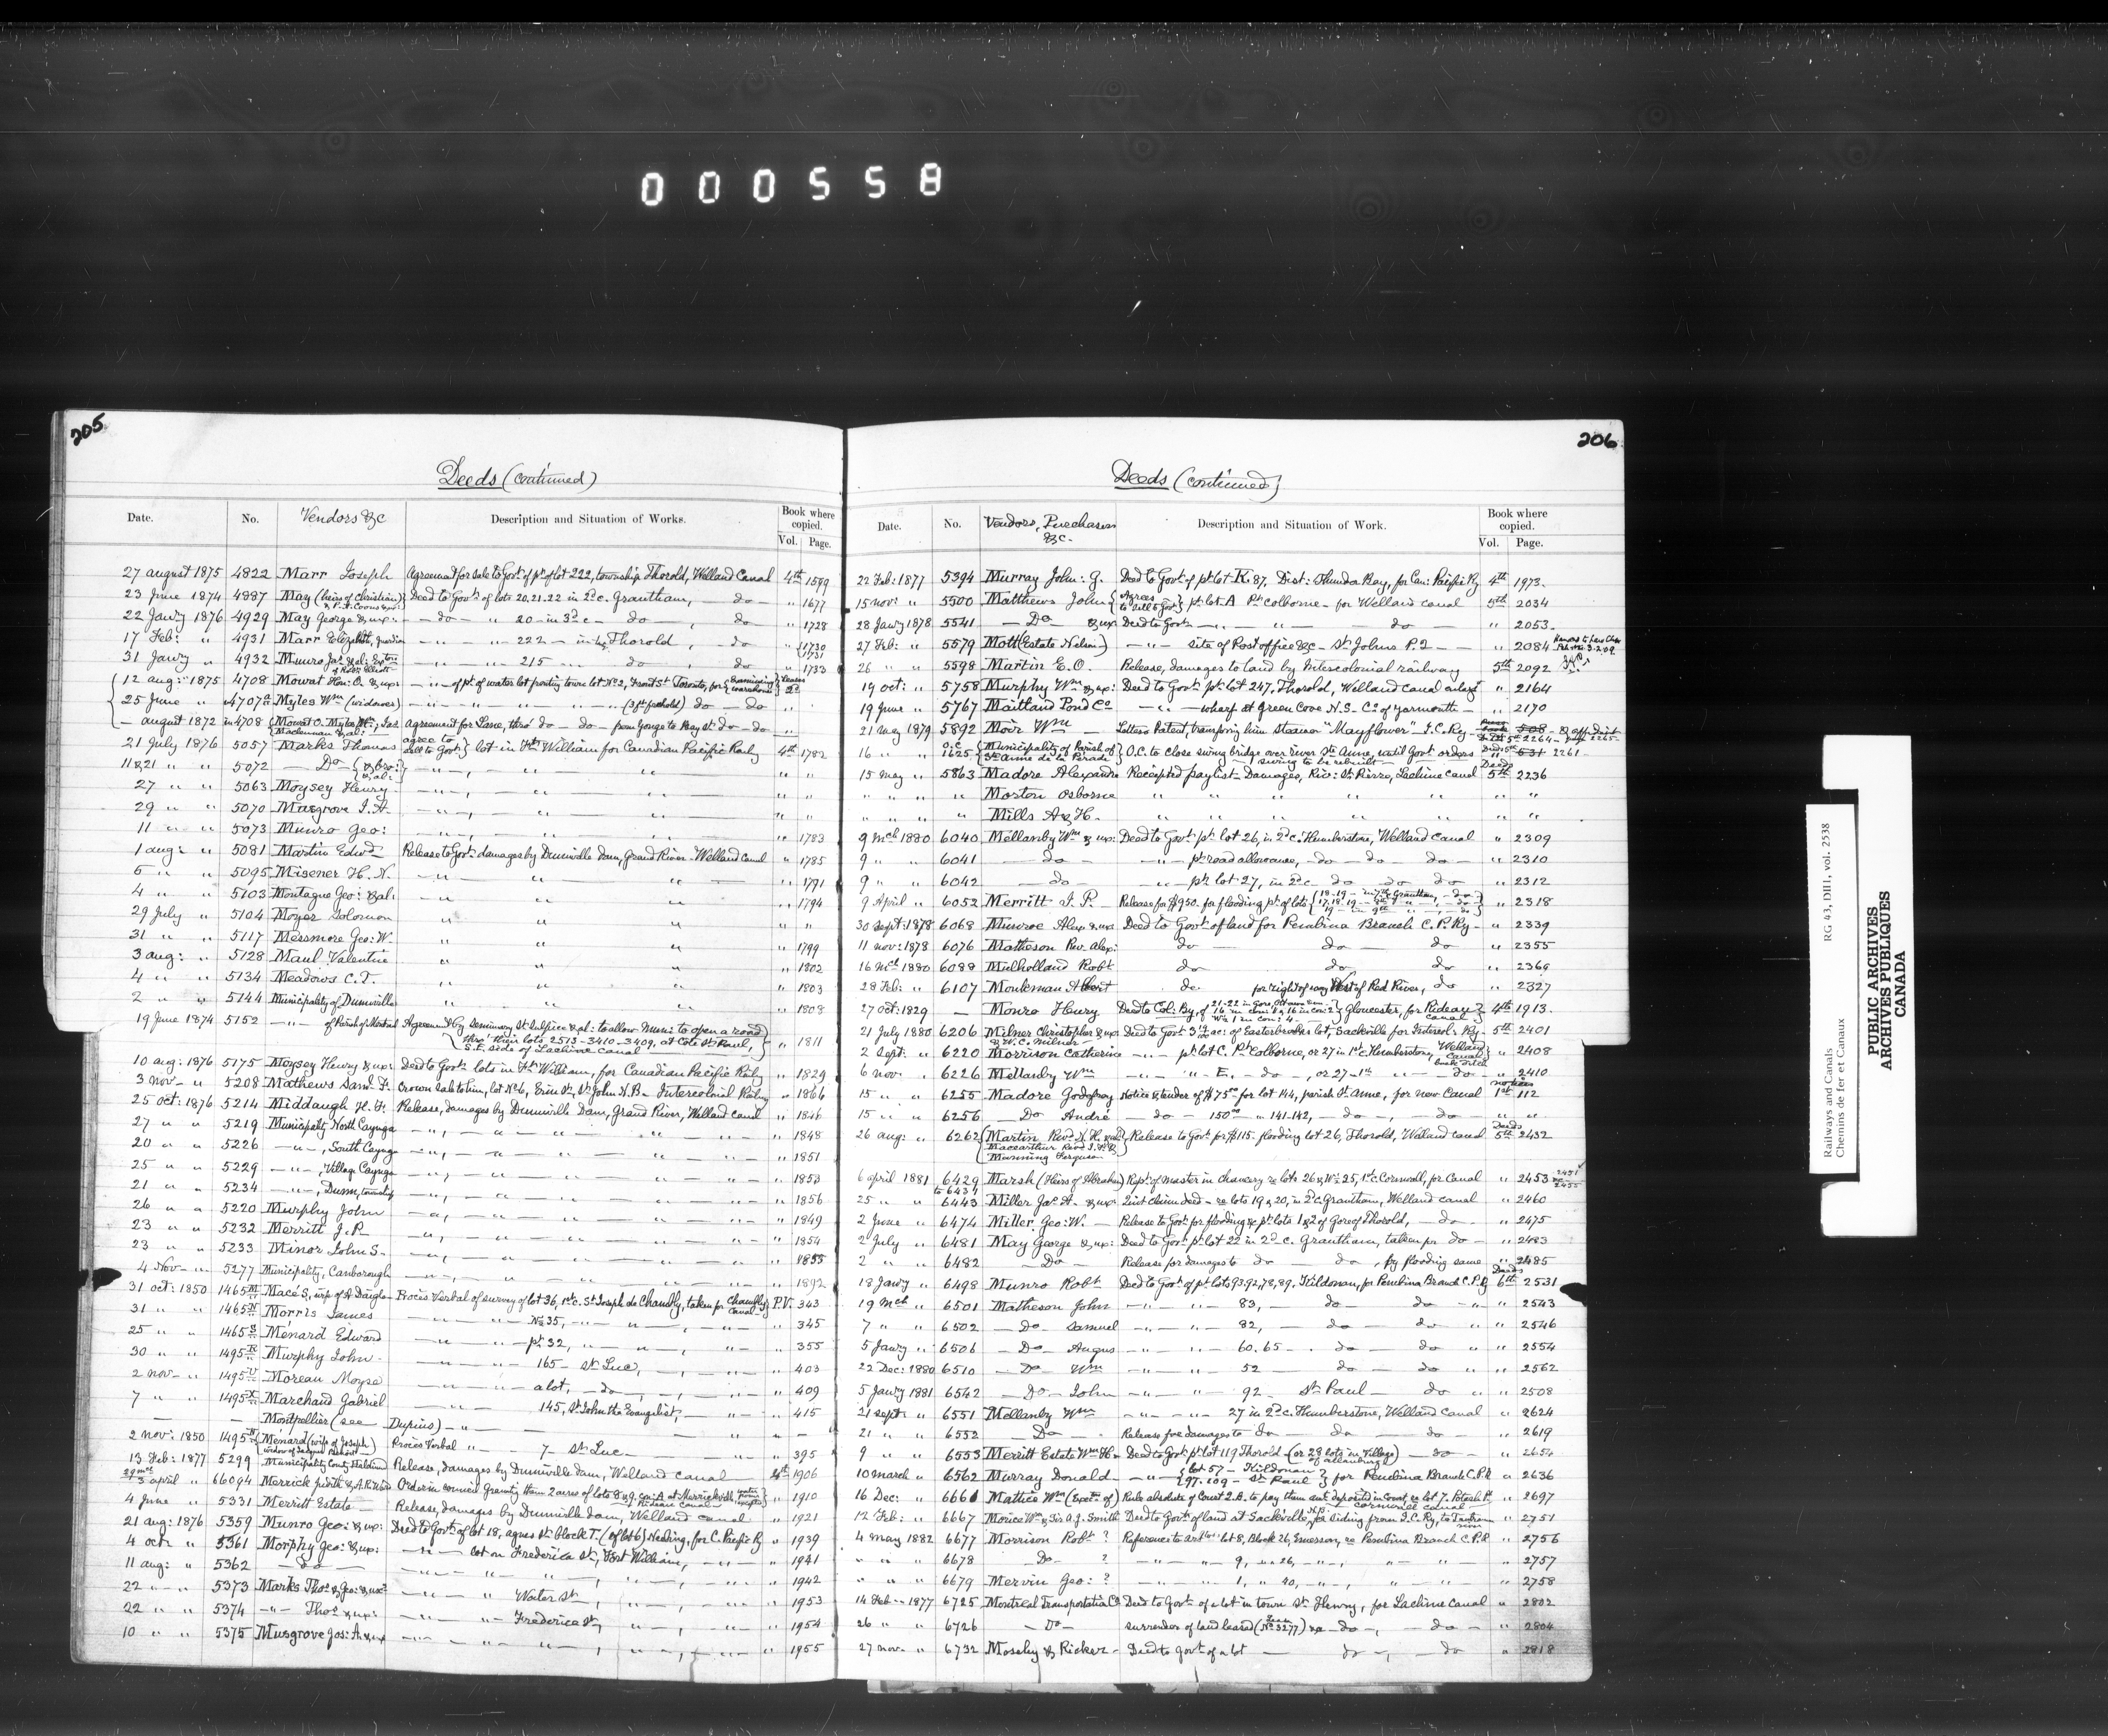 000558
205
Deeds (continued)
Date. No. Vendors &c Description and Situation of Works. Book where copied. Vol. Page.
27 august 1875 4822 Marr Joseph Agreement for sale to Govt of pt of lot 222, township Thorold, Welland Canal 4th 1599
23 June 1874 4887 May (heirs of Christian) Deed to Govt of lots 20.21.22 in 2d c. Grantham, — do — " 1677
22 Jany 1876 4929 May George & ux: — do — " 20 — in 3d c — do — , do — " 1728
17 Feb: " 4931 Marr Elizabeth, — " — " — 222 — in — Thorold, do " 1730 1731
31 Jany " 4932 Munro Jas & al: — " — " — 215 — do , do " 1733
12 aug: 1875 4708 Mowat Hon: O. & ux: — " — of pt of water lot fronting town lot No 2, Front St Toronto, for
25 June " 4707a Myles Wm (widower) — " — " — do — do
— august 1872 in 4708 Mowat O. Myles Agreement for Lease, thro' do — do — from Yonge to Bay St do — do
21 July 1876 5057 Marks Thomas agree to sell to Govt lot in Ft William for Canadian Pacific Raily 4th 1782
11 & 21 " " 5072 — Do — & bro: & al: — " — , " " " "
27 " " 5063 Moysey Henry — " — , " " " "
29 " " 5070 Musgrove J. A. — " — , " " " "
11 " " 5073 Munro Geo: — " — , " " " 1783
1 aug: " 5081 Martin Edwd Release to Govt damages by Dunnville Dam, Grand River — Welland Canal " 1785
5 " " 5095 Misener H. N. — " " " " 1791
4 " " 5103 Montague Geo: & al: — " " " " 1794
29 July " 5104 Moyer Solomon " " " " "
31 " " 5117 Messmore Geo: W. " " " " 1799
3 aug: " 5128 Maul Valentine " " " " 1802
4 " " 5134 Meadows C. T. " " " " 1803
2 " " 5144 Municipality of Dunnville " " " " 1808
19 June 1874 5152 — " — of Parish of Montreal Agreement by Seminary St Sulpice & al: to allow Muni: to open a road thro' their lots 2513 - 3410 - 3409, at Cote St Paul, S.E. side of Lachine Canal " 1811
10 aug: 1876 5175 Moysey Henry & ux: Deed to Govt lots in Ft William, for Canadian Pacific Raily " 1829
3 Nov — " 5208 Mathews Saml F. Crown sale to him, lot No 6, Erin St, St John N.B. Intercolonial Raily " 1866
25 Oct: 1876 5214 Middaugh H. F. Release, damages by Dunnville Dam, Grand River, Welland Canal " 1846
27 " " 5219 Municipality North Cayuga — " — , " — " — " — " 1848
20 " " 5226 — " — , South Cayuga — " — , " — " — " — " 1851
25 " " 5229 — " — , Village Cayuga — " — , " — " — " — " 1853
21 " " 5234 — " — , Dunn, township — " — , " — " — " — " 1856
26 " " 5220 Murphy John — " — , " — " — " — " 1849
23 " " 5232 Merritt J. P. — " — , " — " — " — " 1854
23 " " 5233 Minor John S. — " — , " — " — " — " 1855
4 Nov — " 5277 Municipality, Canborough — " — , " — " — " — " 1892
31 oct: 1850 1465 M Macé S, wife of A. Daigle Procès Verbal of survey of lot 36, 1st c. St Joseph de Chambly, taken for Chambly Canal — P.V. 343
31 " " 1465 N Morris James — " — " — No 35, — " — , " — " 345
25 " " 1465 S Ménard Edward — " — " — pt 32, — " — , " — " 355
30 " " 1495 R Murphy John — " — " — 165 — St Luc, — " — " 403
2 nov — " 1495 V Moreau Moyse — " — " — a lot, — do — , — " — " 409
7 " " 1495 X Marchand Gabriel — " — 145, St John the Evangelist, — " — " 415
— — Montpellier (see Dupuis) — " — " —
2 nov: 1850 1495 N Ménard (wife of Joseph) Procès Verbal " — 7 — St Luc — " 395
13 Feb: 1877 5299 Municipality County Haldimd Release, damages by Dunnville Dam, Welland Canal 4th 1906
3 april " 66094 Merrick Judith Order in council granting them 2 acres of lots 8 & 9 con: A at Merrickville Rideau Canal " 1910
4 June " 5331 Merritt Estate — Release, damages by Dunnville Dam, Welland Canal " 1921
21 aug: 1876 5359 Munro Geo: & ux: Deed to Govt of lot 18, agnes St block T. (of lot 6) Neebing, for C. Pacific Ry " 1939
4 oct " 5361 Morphy Geo: & ux: — " — lot on Frederica St, Fort William, — " — " 1941
11 aug: " 5362 — do — — " — " — " — , " 1942
22 " " 5373 Marks Thos & Geo: & ux: — " — " Water St , " — , " 1953
22 " " 5374 — " — Thos & ux: — " — " — Frederica St, " — , " 1954
10 " " 5375 Musgrove Jos: A & ux — " — " — " , " — , " 1955
206
Deeds (continued)
Date. No. Vendors, Purchasers &c. Description and Situation of Work. Book where copied. Vol. Page.
22 Feb: 1877 5394 Murray John: G. Deed to Govt of pt lot K. 87, Dist: Thunder Bay, for Can: Pacific Ry 4th 1973
15 nov: " 5500 Matthews John Agrees to sell to Govt pt lot A Pt Colborne — for Welland canal 5th 2034
28 Jany 1878 5541 — Do — & ux Deed to Govt — " — " — do — " 2053
27 Feb: " 5579 Mott (Estate Nelson) — " — site of Post office &c — St Johns P.Q — " 2084
26 " " 5598 Martin E. O. Release, damages to land by Intercolonial railway 5th 2092
19 oct: " 5758 Murphy Wm & ux: Deed to Govt pt lot 247, Thorold, Welland canal enlargt " 2164
19 June " 5767 Maitland Pond Co — " — wharf at Green Cove N.S. Co of Yarmouth — " 2170
21 Aug 1879 5892 Moir Wm Letters Patent, transfering him steamer "Mayflower" I.C. Ry — 5th 2264
16 " " O.C. 1625 Municipality of Parish of Ste Anne de la Perade O.C. to close swing bridge over river Ste Anne, until Govt orders swing to be rebuilt — 531 2261
15 May " 5863 Madore Alexandre Receipted paylist — Damages, Riv: St Pierre, Lachine Canal Deeds 5th 2236
" " " " Morton Osborne " " " " " "
" " " " Mills A & H. " " " " " "
9 Mch 1880 6040 Mellanby Wm & ux: Deed to Govt pt lot 26, in 2d c. Humberstone, Welland Canal " 2309
9 " " 6041 — do — — " — pt road allowance, — do — do — do — " 2310
9 " " 6042 — do — " — pt lot 27, in 2d c — do do do " 2312
9 April " 6052 Merritt J. P. Release for $950. for flooding pt of lots " 2318
30 Sept: 1878 6068 Munroe Alex & ux Deed to Govt of land for Pembina Branch C.P. Ry — " 2339
11 nov: 1878 6076 Matheson Rev. Alex: do — do — do " 2355
16 Mch 1880 6088 Mulholland Robt do do do " 2369
28 Feb: " 6107 Monkman Albert do. for right of way West of Red River, do " 2327
27 oct: 1829 — Monro Henry Deed to Col: By, of Gloucester, for Rideau Canal 4th 1913
21 July 1880 6206 Milner Christopher & ux & W. C. Milner Deed to Govt ac: of Easterbrooks lot, Sackville for Intercol: Ry — 5th 2401
2 Sept. " 6220 Morrison Catherine — " — pt lot C. Pt Colborne, or 27 in 1st c. Humberstone, Welland Canal " 2408
6 nov " 6226 Mellanby Wm — " — " — E. — do — , or 27 — 1st " — do — " 2410
15 " " 6255 Madore Godefroy Notice & tender of $75.00 for lot 144, parish St Anne, for new Canal notices 1st 112
15 " " 6256 — Do André — do — 150.00 " 141-142, — do — , — do — " "
26 aug: " 6262 Martin Revd N. H. & al Macarthur Revd Munning Ferguson Release to Govt for $115. flooding lot 26, Thorold, Welland canal Deeds 5th 2432
6 april 1881 6429 to 6431 Marsh (Heirs of Abraham) Rept of Master in chancery re lots 26 & W½ 25, 1st c. Cornwall, for Canal " 2453
25 " " 6443 Miller Jas A. & ux Quit claim deed — re lots 19 & 20, in 2d c. Grantham, Welland canal " 2460
2 June " 6474 Miller Geo: W. — Release to Govt for flooding &c pt lots 1 & 2 of Gore of Thorold, — do — " 2475
2 July " 6481 May George & ux: Deed to Govt pt lot 22 in 2d c. Grantham, taken for do — " 2483
2 " " 6482 — Do — Release for damages to do — do , by flooding same " 2485
18 Jany " 6498 Munro Robt Deed to Govt of pt lots 93.92,78,89, Kildonan, for Pembina Branch C.P. Ry Deeds 6th 2531
19 Mch " 6501 Matheson John — " — " — 83, — do — do — " 2543
7 " " 6502 — Do — Samuel — " — " — 82, — do — do " 2546
5 Jany " 6506 — Do — Angus — " — " — 60. 65 — do — do " 2554
22 Dec: 1880 6510 — Do Wm — " — " — 52 — do — do " 2562
5 Jany 1881 6542 — Do — John — " — " — 92 — St Paul — do " 2508
21 Sept " 6551 Mellanby Wm — " — " — 27 in 2d c. Humberstone, Welland Canal " 2624
21 " " 6552 — Do — Release for damages to do — do — do " 2619
9 " " 6553 Merritt Estate Wm H — Deed to Govt pt lot 119 Thorold (or 28 lots in Village of Allanburg) — do — " 2654
10 March " 6562 Murray Donald — " — lot 57 — Kildonan 97. 109 — St Paul for Pembina Branch C.P.R " 2636
16 Dec: " 6661 Mattice Wm (Exect of) Rule absolute of Court Q.B. to pay them amt deposited in Court, re lot 7. Cornwall canal " 2697
12 Feb: " 6667 Morice Wm & A. J. Smith Deed to Govt of land at Sackville N.B. for siding from I.C. Ry, to Tantramar river " 2751
4 May 1882 6677 Morrison Robt ? Reference to lot 8, Block 26, Emerson, re Pembina Branch C.P.R " 2756
" " " 6678 — Do — ? — " — " — 9, " 26, — " — , " — " — " 2757
" " " 6679 Mervin Geo: ? — " — " — 1, " 40, — " — , " — " — " 2758
14 Feb — 1877 6725 Montreal Transportation Co Deed to Govt of a lot in town St Henry, for Lachine Canal " 2802
26 " " 6726 — Do — surrender of land leased (No 3277) &c — do — , — do — " 2804
27 nov — " 6732 Moseley & Ricker — Deed to Govt of a lot — do — , do " 2818
Railways and Canals RG 43, DIII, vol. 2538
Chemins de fer et Canaux
PUBLIC ARCHIVES
ARCHIVES PUBLIQUES
CANADA